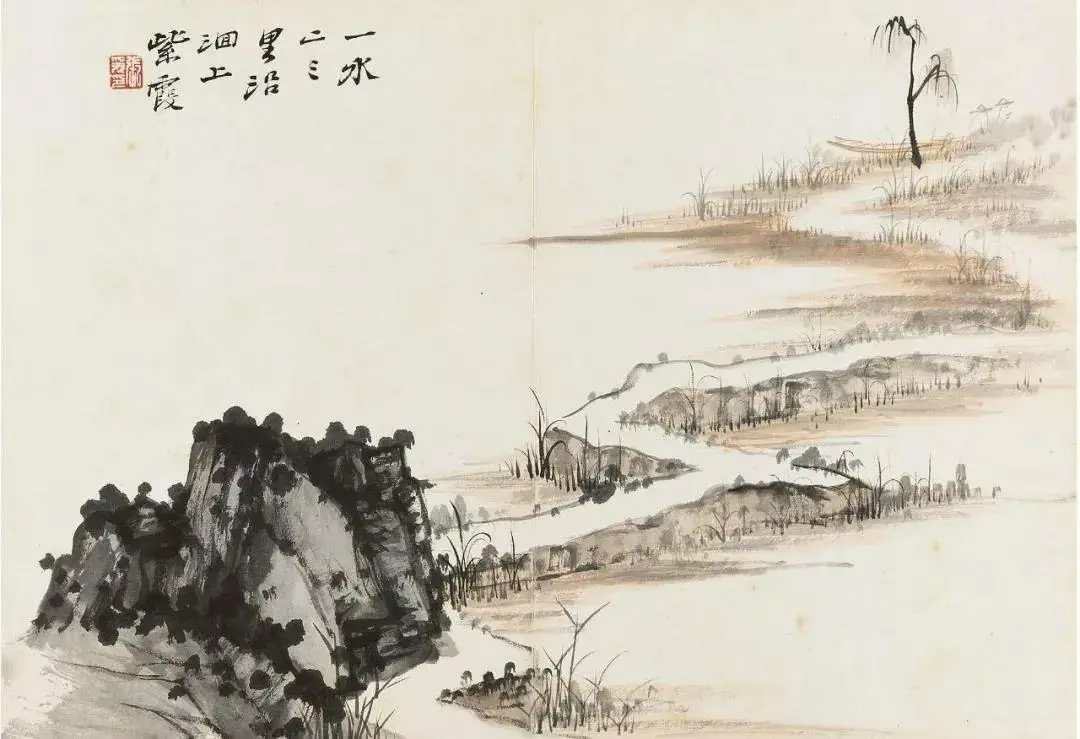 一水
二三
里沿
洄上
紫霞